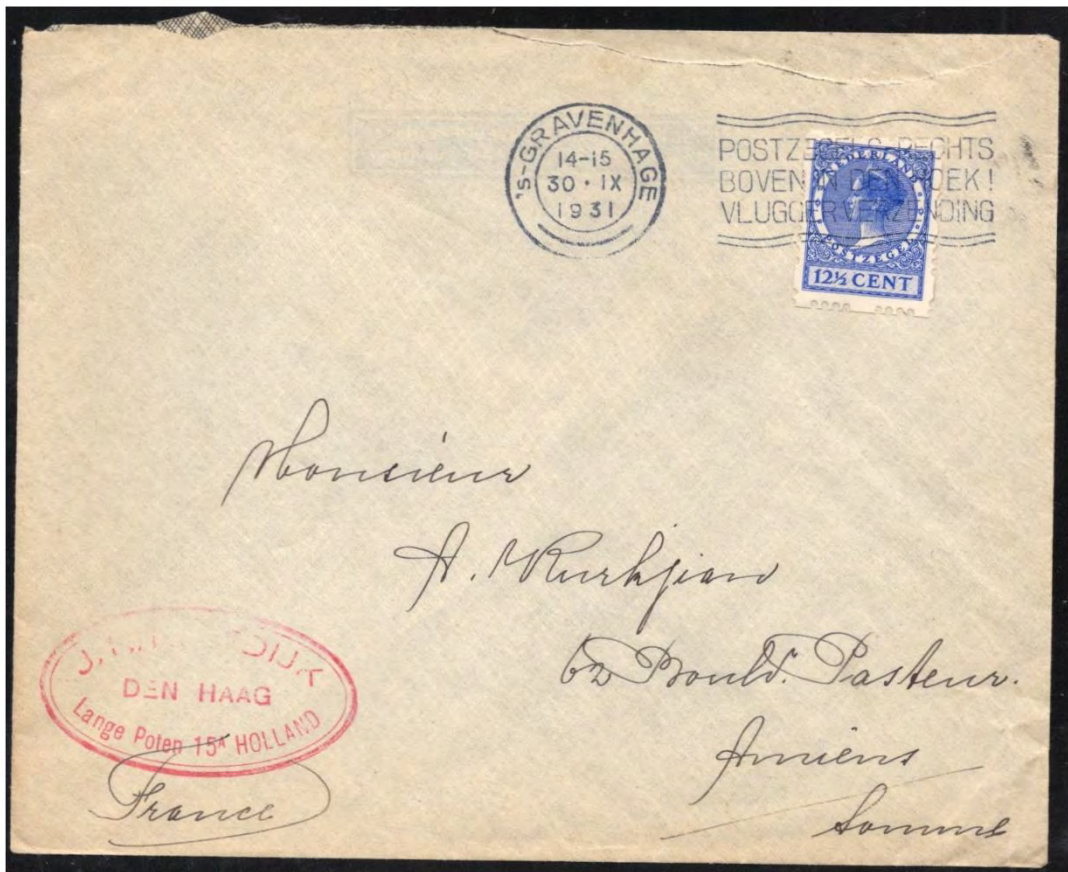 's-GRAVENHAGE
14-15
30·IX
1931
POSTZEGELS RECHTS
BOVEN IN DEN HOEK!
VLUGGER VERZENDING
NEDERLAND
POSTZEGEL
12½ CENT
Monsieur
A. Kurkjian
62 Bould. Pasteur.
Amiens
Somme
DIJK
DEN HAAG
Lange Poten 15A HOLLAND
France